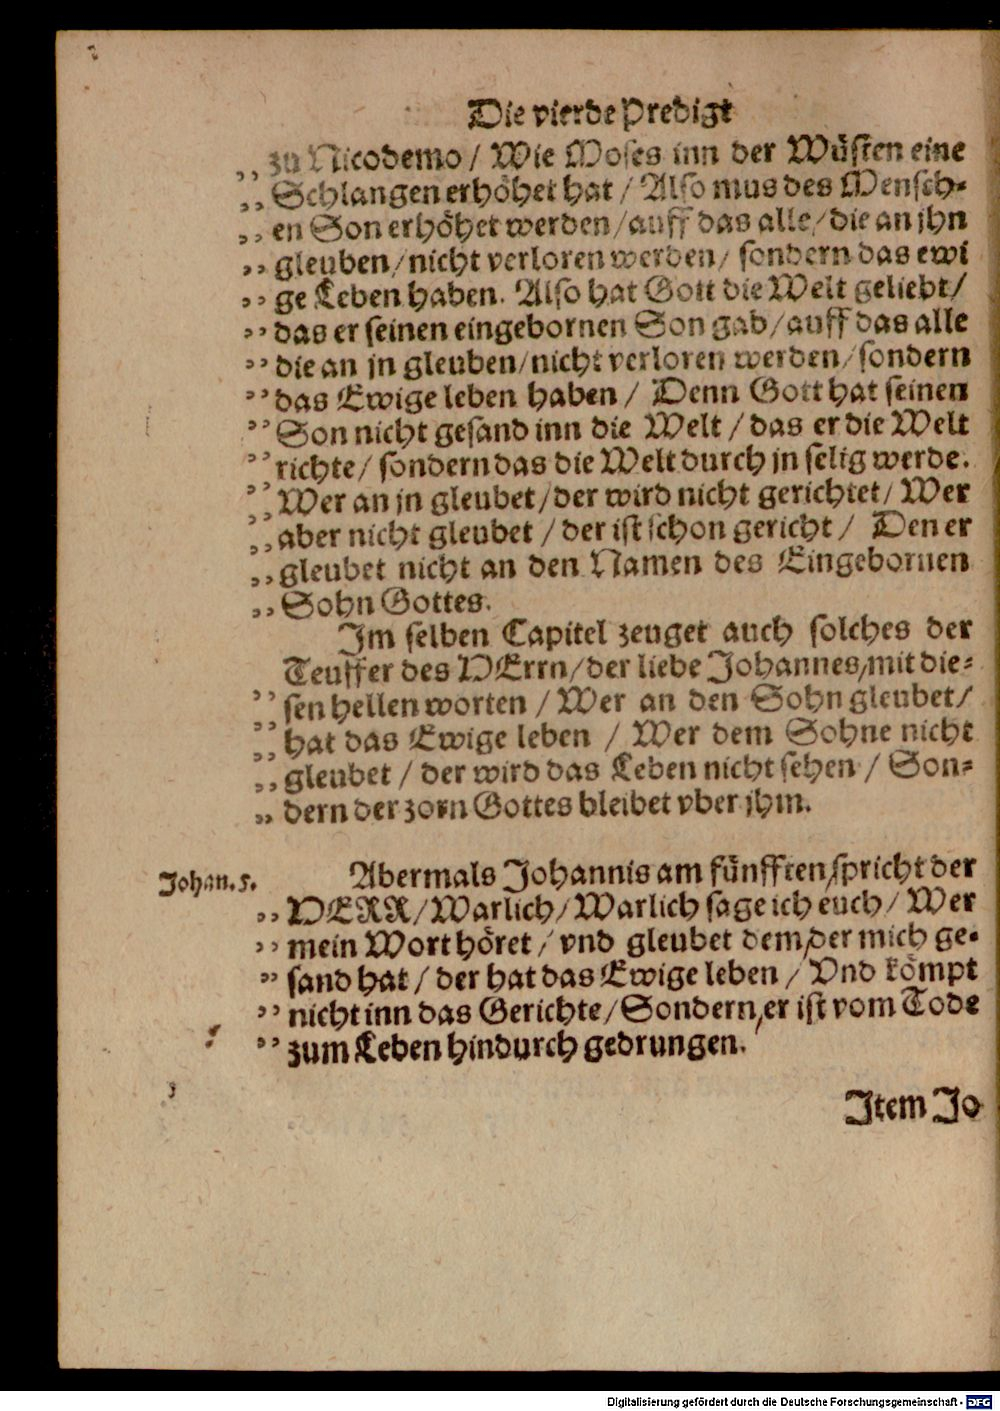 Die vierde Predigt
,, zu Nicodemo / Wie Moses inn der Wüsten eine
,, Schlangen erhöhet hat / Also mus des Mensch-
,, en Son erhöhet werden / auff das alle / die an jhn
,, gleuben / nicht verloren werden / sondern das ewi
,, ge Leben haben. Also hat Gott die Welt geliebt /
,, das er seinen eingebornen Son gab / auff das alle
,, die an jn gleuben / nicht verloren werden / sondern
,, das Ewige leben haben / Denn Gott hat seinen
,, Son nicht gesand inn die Welt / das er die Welt
,, richte / sondern das die Welt durch jn selig werde.
,, Wer an jn gleubet / der wird nicht gerichtet / Wer
,, aber nicht gleubet / der ist schon gericht / Den er
,, gleubet nicht an den Namen des Eingebornen
,, Sohn Gottes.
Im selben Capitel zeuget auch solches der
Teuffer des HErrn / der liebe Johannes / mit die-
,, sen hellen worten / Wer an den Sohn gleubet /
,, hat das Ewige leben / Wer dem Sohne nicht
,, gleubet / der wird das Leben nicht sehen / Son-
,, dern der zorn Gottes bleibet vber jhm.
Johan. 5.
Abermals Johannis am fünfften / spricht der
,, HERR / Warlich / Warlich sage ich euch / Wer
,, mein Wort höret / vnd gleubet dem / der mich ge-
,, sand hat / der hat das Ewige leben / Vnd kömpt
,, nicht inn das Gerichte / Sondern / er ist vom Tode
,, zum Leben hindurch gedrungen.
Item Jo
Digitalisierung gefördert durch die Deutsche Forschungsgemeinschaft - DFG